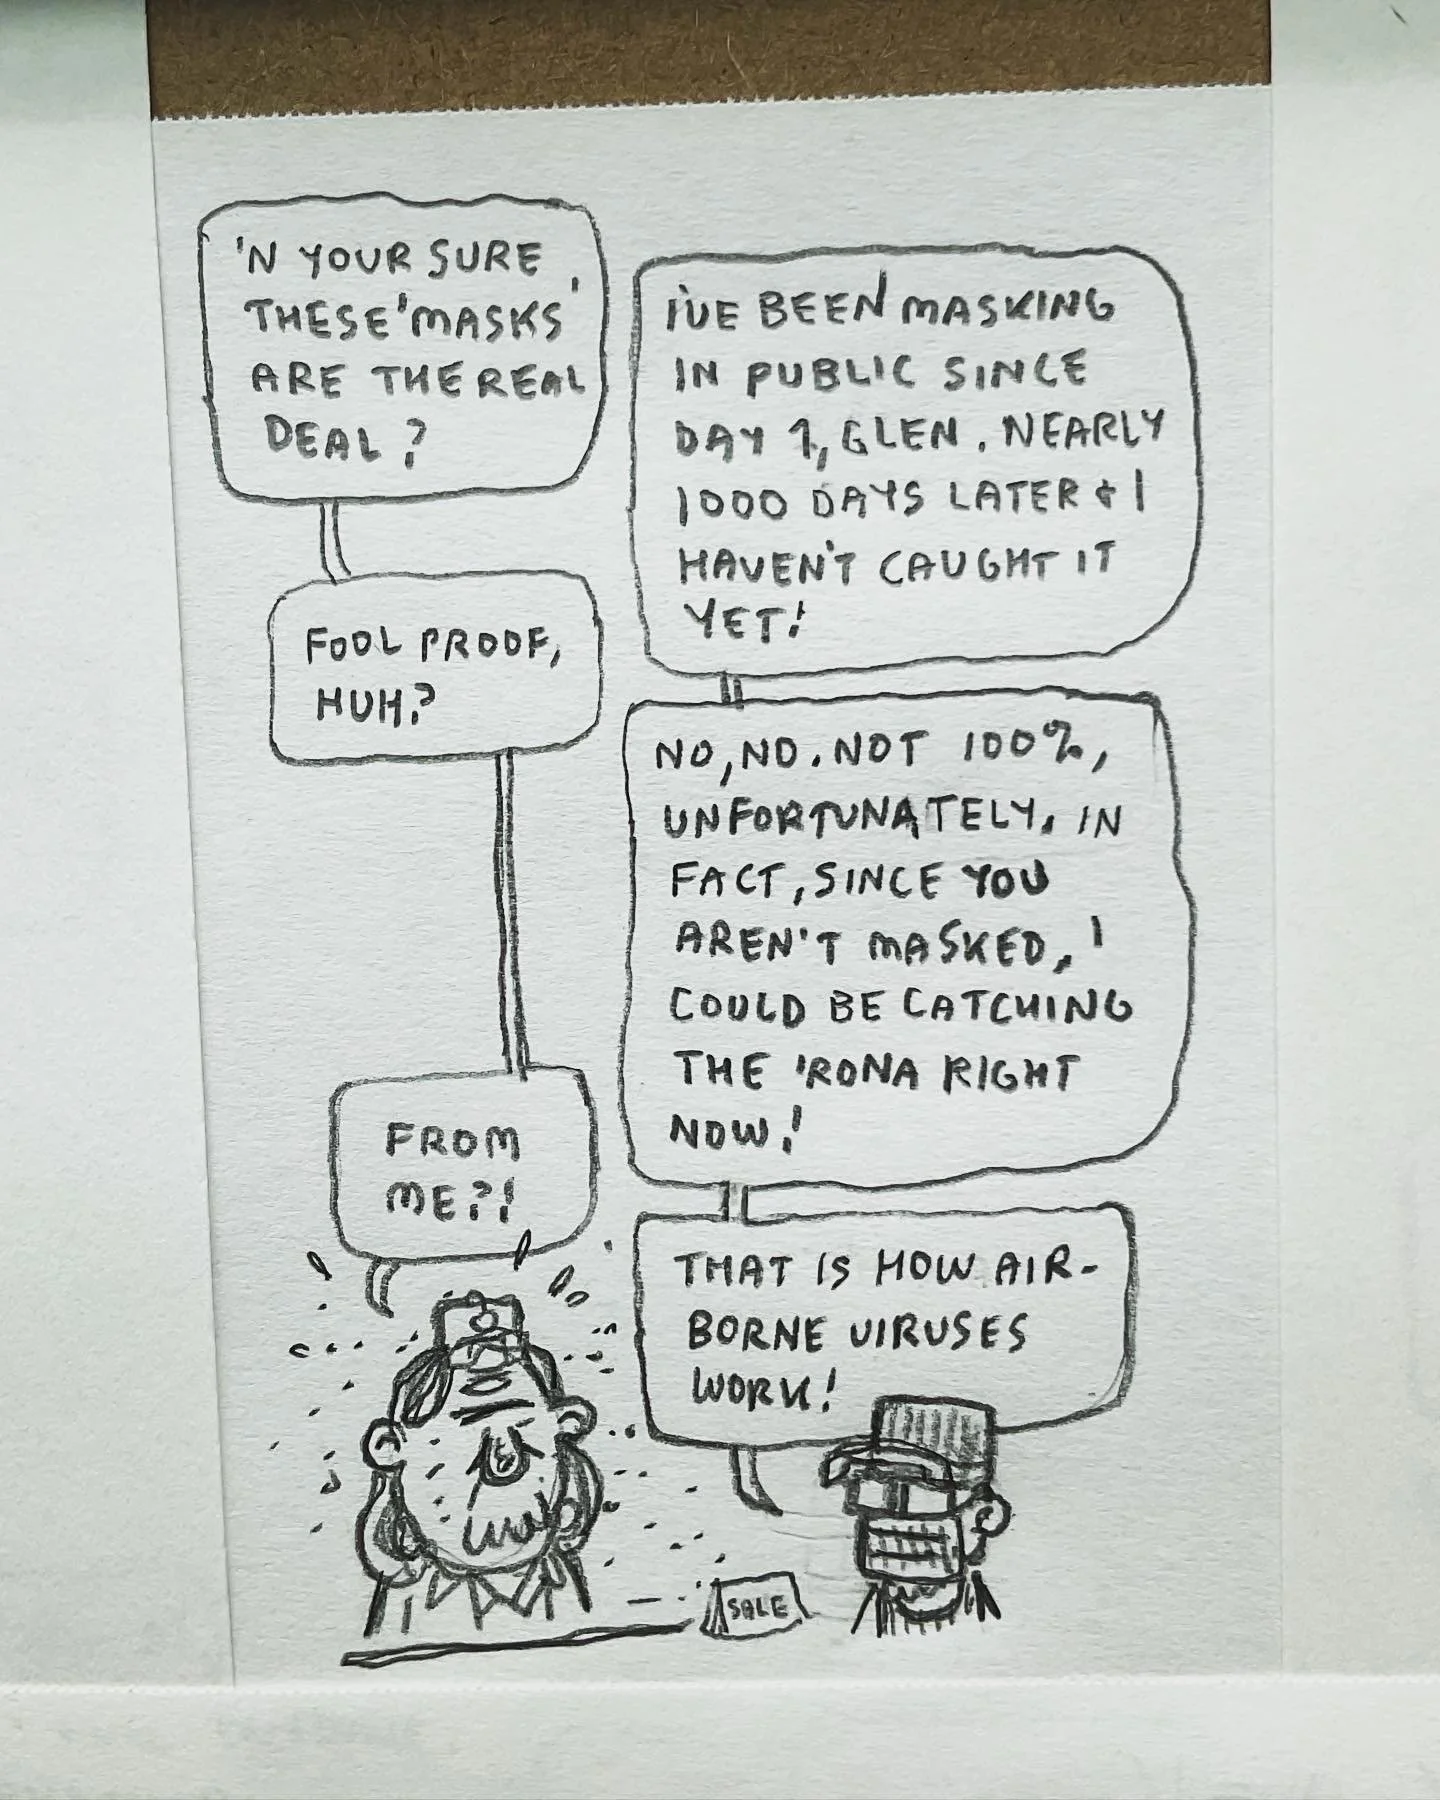 'N YOUR SURE
THESE 'MASKS'
ARE THE REAL
DEAL?
I'VE BEEN MASKING
IN PUBLIC SINCE
DAY 1, GLEN. NEARLY
1000 DAYS LATER & I
HAVEN'T CAUGHT IT
YET!
FOOL PROOF,
HUH?
NO, NO. NOT 100%,
UNFORTUNATELY. IN
FACT, SINCE YOU
AREN'T MASKED, I
COULD BE CATCHING
THE 'RONA RIGHT
NOW!
FROM
ME?!
THAT IS HOW AIR-
BORNE VIRUSES
WORK!
SALE